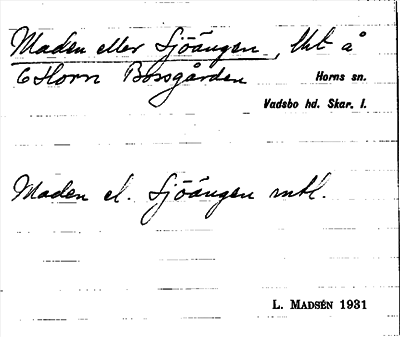 Maden eller Sjöängen, Ut å
Horn Bossgården
Horns sn.
Vadsbo hd. Skar. l.
Maden el. Sjöängen mtl.
L. MADSÉN 1931